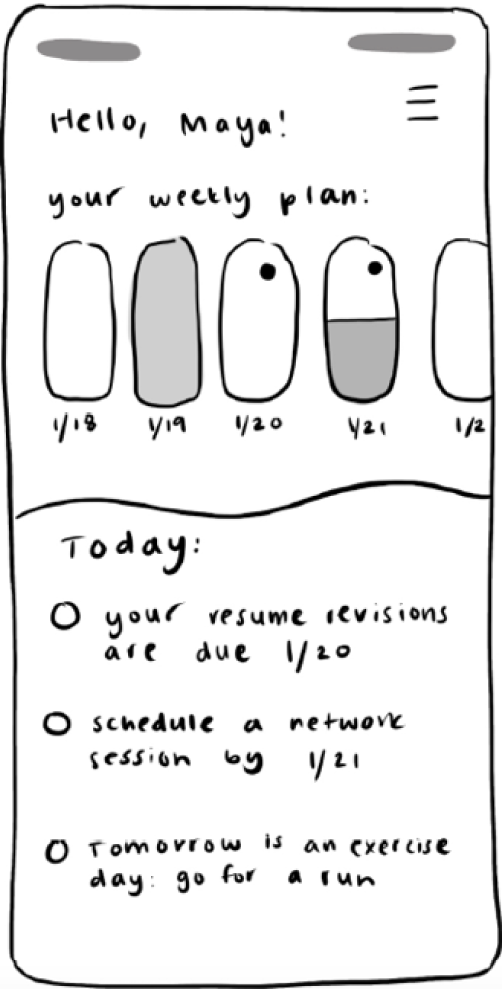 Hello, Maya!
your weekly plan:
1/18 1/19 1/20 1/21 1/2
Today:
your resume revisions
are due 1/20
schedule a network
session by 1/21
Tomorrow is an exercise
day: go for a run